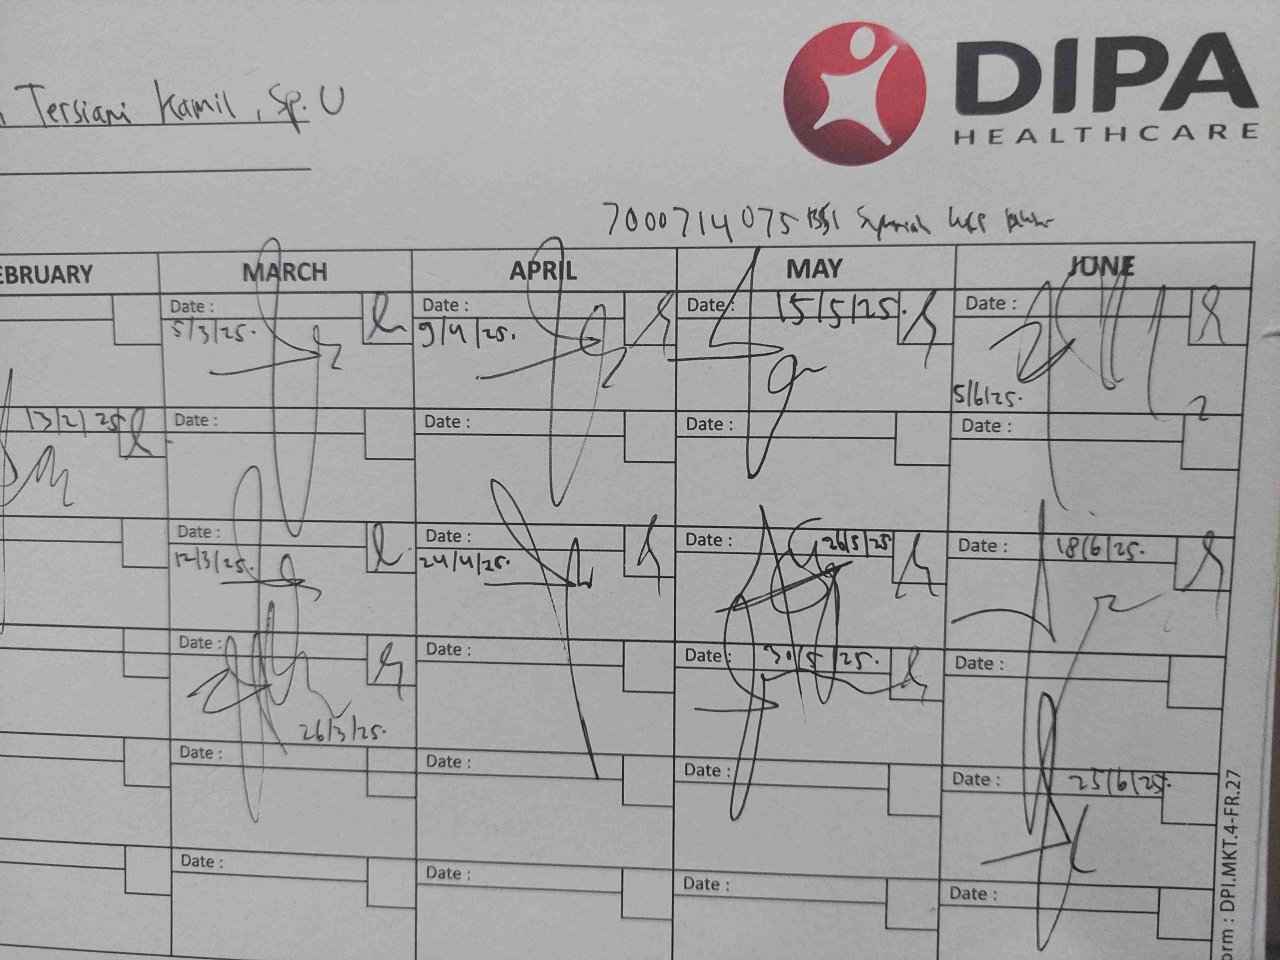 DIPA
HEALTHCARE
Tersiani Kamil, Sp.U
7000714075 BSI
EBRUARY MARCH APRIL MAY JUNE
Date : Date : Date : 15/5/25. Date :
5/3/25. 9/4/25.
5/6/25.
13/2/25. Date : Date : Date : Date :
Date : Date : Date : 26/5/25 Date : 18/6/25.
12/3/25. 24/4/25.
Date : Date : Date : 30/5/25. Date :
26/3/25.
Date : Date : Date : Date : 25/6/25.
Date : Date : Date : Date :
orm : DPI.MKT.4-FR.27